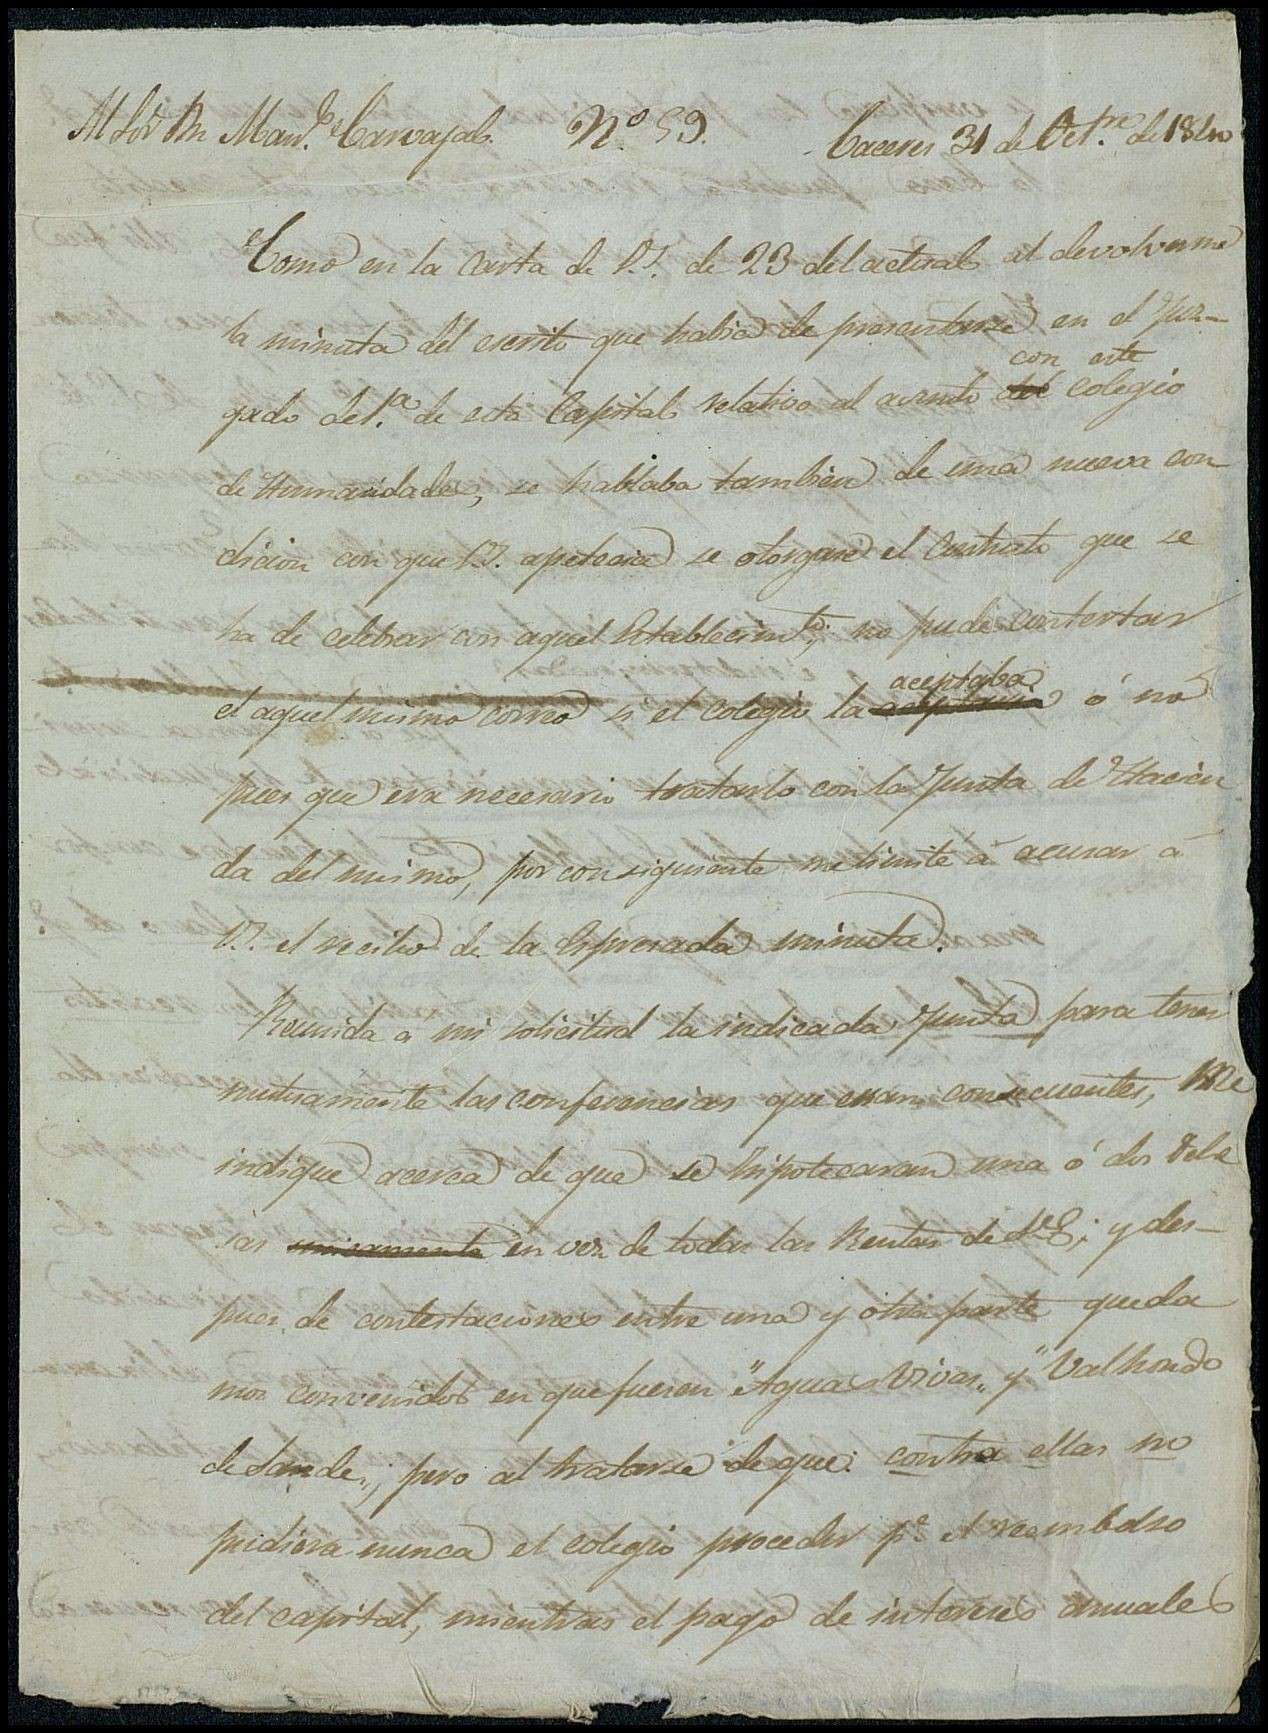 Al Sor Dn Manl. Carvajal. No. 59. Caceres 31 de Octre. de 1840
Como en la carta de V.S. de 23 del actual al devolverme
la minuta del escrito que habia de presentarse en el Juz-
con este
gado de 1.a de esta Capital relativo al asunto del colegio
de Humanidades, se hablaba tambien de una nueva con
dicion con que V.S. apetecia se otorgase el Contrato que se
ha de celebrar con aquel Establecimto.; no pude contestar
aceptaba
el aquel mismo correo si el colegio la ó no
pues que era necesario tratarlo con la Junta de Hacien
da del mismo, por consiguiente me limité á acusar á
V.S. el recibo de la espresada minuta.
Reunida á mi solicitud la indicada Junta para tener
mutuamente las conferencias que eran consecuentes, me
indique acerca de que se hipotecaran una ó dos dehe
sas unicamente en vez de todas las Rentas de S.E.; y des-
pues de contestaciones entre una y otra parte queda
mos convenidos en que fuesen "Aguas Vivas" y "Valhondo
de Sande", pero al tratarse de que contra ellas no
pudiera nunca el colegio proceder pa. el reembolso
del capital, mientras el pago de intereses anuales